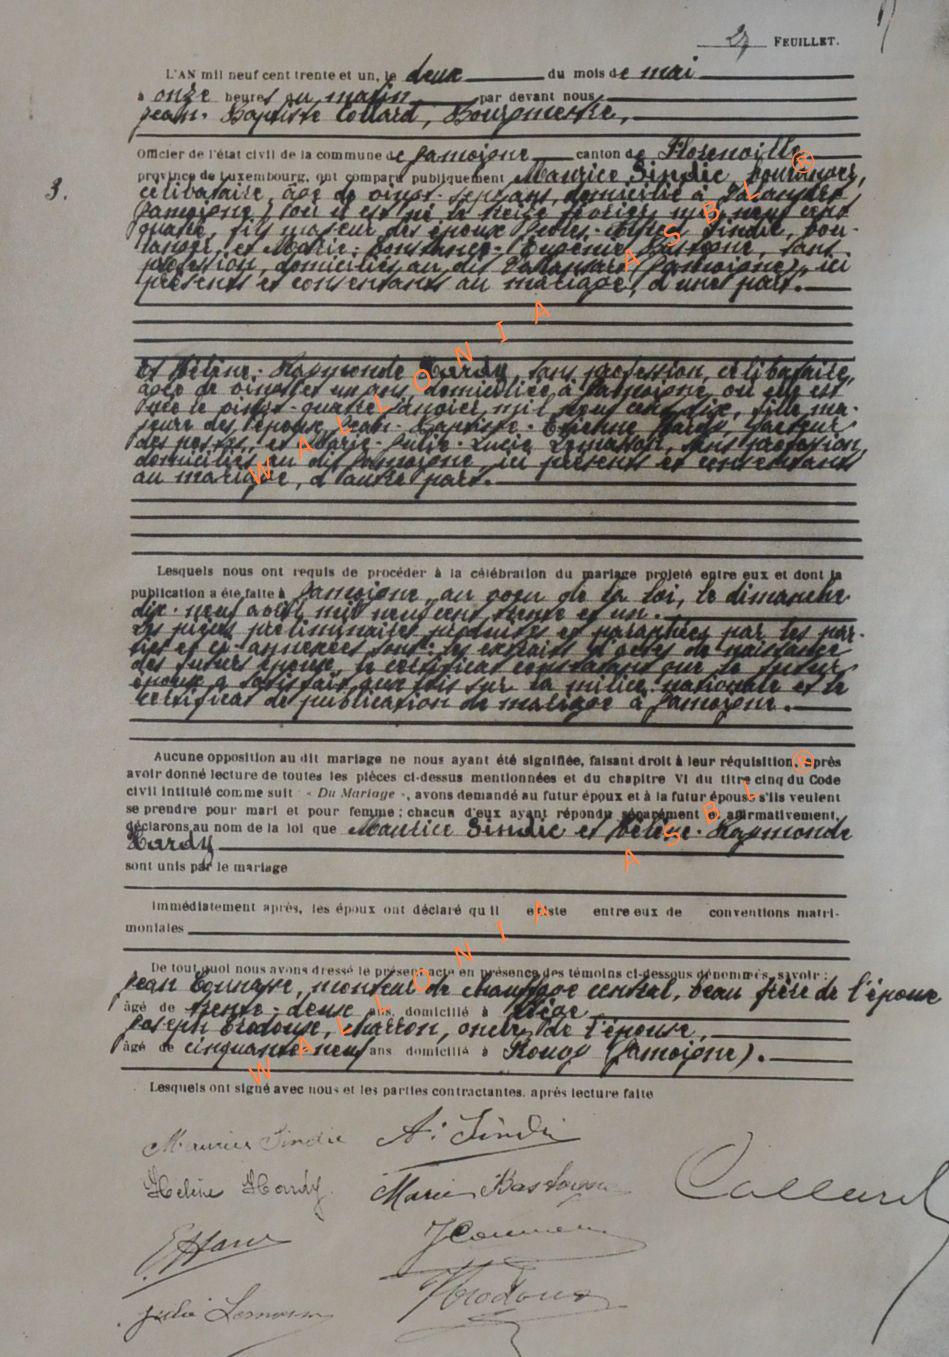 27 FEUILLET.
L'AN mil neuf cent trente et un, le deux du mois de mai
à onze heures du matin par devant nous
Jean-Baptiste Collard, Bourgmestre,
Officier de l'état civil de la commune de Jamoigne canton de Florenville
3.
province de Luxembourg, ont comparu publiquement Maurice Sindic,
célibataire, âgé de vingt-sept ans, domicilié à
Jamoigne, où il est né le treize février mil neuf cent
quatre, fils majeur des époux Sindic, bou-
langer, et Marie-Constance-Eugénie Bastogne, sans
profession, domiciliés au dit (Jamoigne), ici
présents et consentants au mariage, d'une part.
Et Hélène-Raymonde Hardy, sans profession, célibataire,
âgée de vingt et un ans, domiciliée à Jamoigne, où elle est
née le vingt-quatre janvier mil neuf cent dix, fille ma-
jeure des époux Jean-Baptiste- Hardy, facteur
des postes, et Marie-Julie-Lucie sans profession,
domiciliés au dit Jamoigne, ici présents et consentants
au mariage, d'autre part.
Lesquels nous ont requis de procéder à la célébration du mariage projeté entre eux et dont la
publication a été faite à Jamoigne, au voeu de la loi, le dimanche
dix-neuf avril mil neuf cent trente et un.
Les pièces préliminaires produites et paraphées par les par-
ties et ci-annexées sont: les extraits d'actes de naissance
des futurs époux, le certificat constatant que le futur
époux a satisfait aux lois sur la milice nationale et le
certificat de publication de mariage à Jamoigne.
Aucune opposition au dit mariage ne nous ayant été signifiée, faisant droit à leur réquisition, après
avoir donné lecture de toutes les pièces ci-dessus mentionnées et du chapitre VI du titre cinq du Code
civil intitulé comme suit : « Du Mariage », avons demandé au futur époux et à la future épouse s'ils veulent
se prendre pour mari et pour femme ; chacun d'eux ayant répondu séparément et affirmativement,
déclarons au nom de la loi que Maurice Sindic et Hélène-Raymonde
Hardy
sont unis par le mariage
Immédiatement après, les époux ont déclaré qu'il existe entre eux de conventions matri-
moniales
De tout quoi nous avons dressé le présent acte en présence des témoins ci-dessous dénommés, savoir :
Jean monteur de chauffage central, beau frère de l'épouse
âgé de trente-deux ans, domicilié à Liège
Joseph charron, oncle de l'épouse,
âgé de cinquante-neuf ans domicilié à (Jamoigne).
Lesquels ont signé avec nous et les parties contractantes, après lecture faite
Maurice Sindic A. Sindic
Hélène Hardy Marie Bastogne Collard
Julie
WALLONIA ASBL ®
WALLONIA ASBL ®